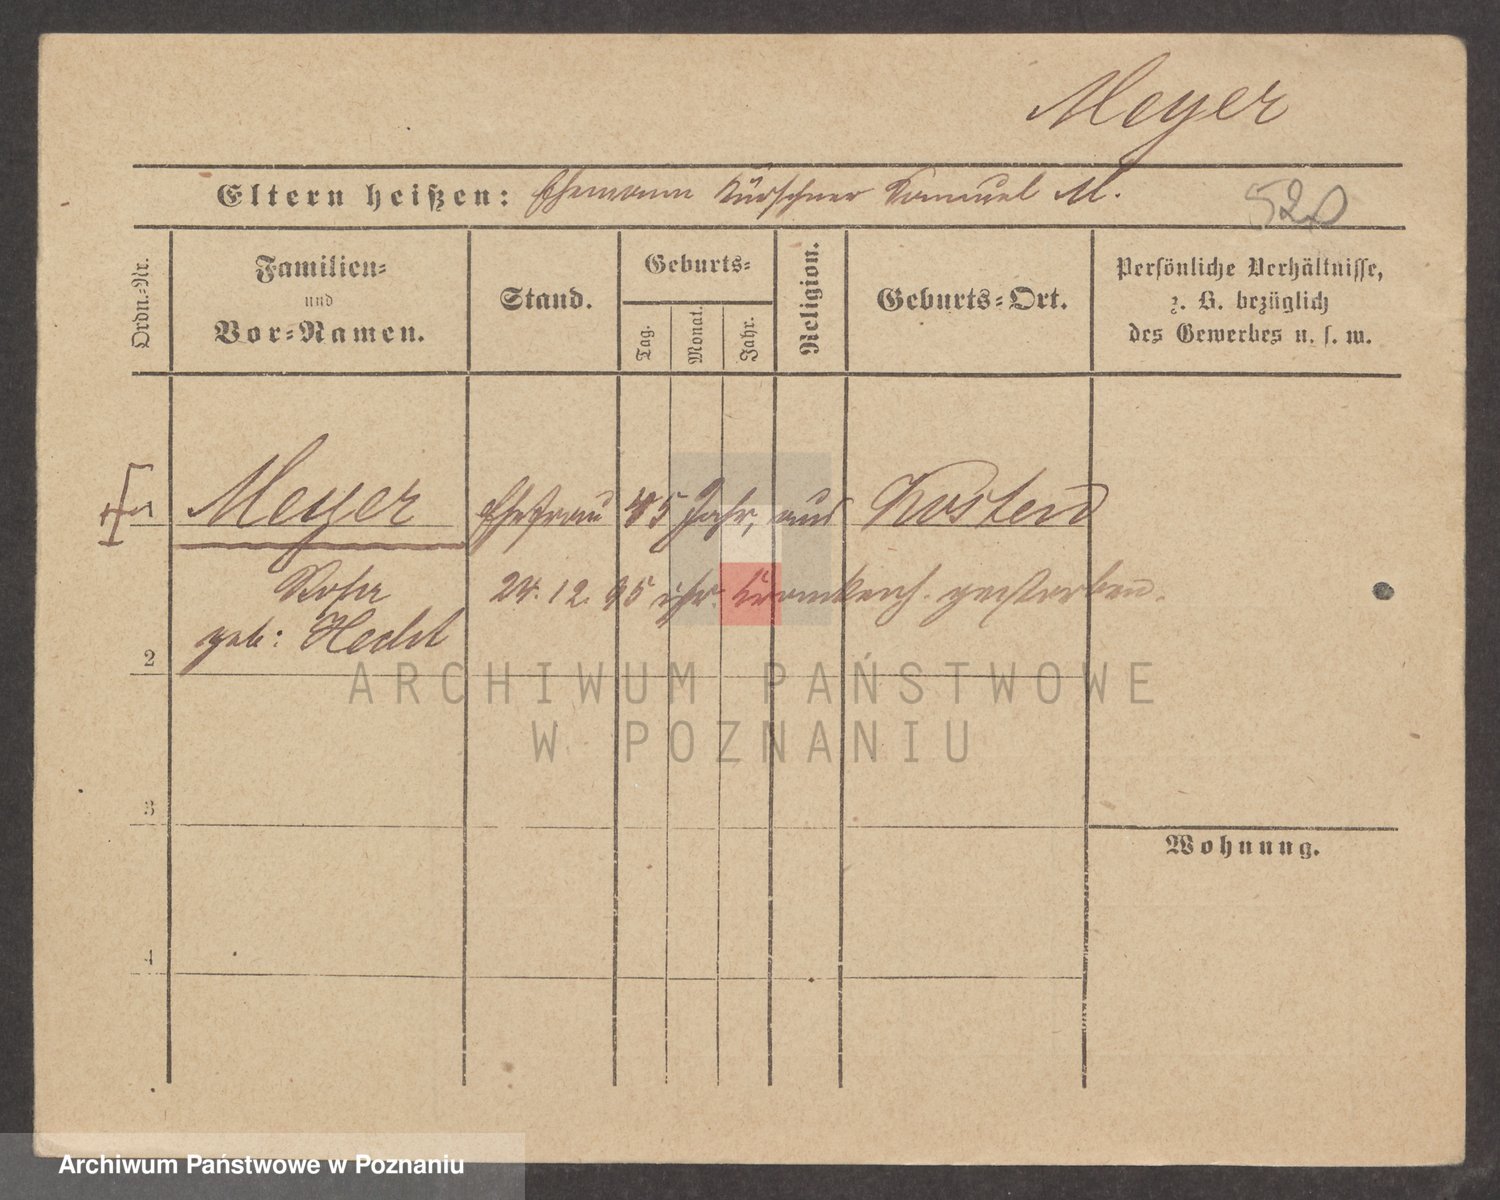 Meyer
Eltern heißen: Ehemann Kürschner Samuel M.
520
Ordn.-Nr.
Familien-
und
Vor-Namen.
Stand.
Geburts-
Tag.
Monat.
Jahr.
Religion.
Geburts-Ort.
Persönliche Verhältnisse,
z. B. bezüglich
des Gewerbes u. s. w.
1 Meyer Ehefrau 45 Jahr, aus Kosten
Rosa 24.12.95 Krankenh. gestorben.
geb: Hecht
2
3
Wohnung.
4
ARCHIWUM PAŃSTWOWE
W POZNANIU
Archiwum Państwowe w Poznaniu